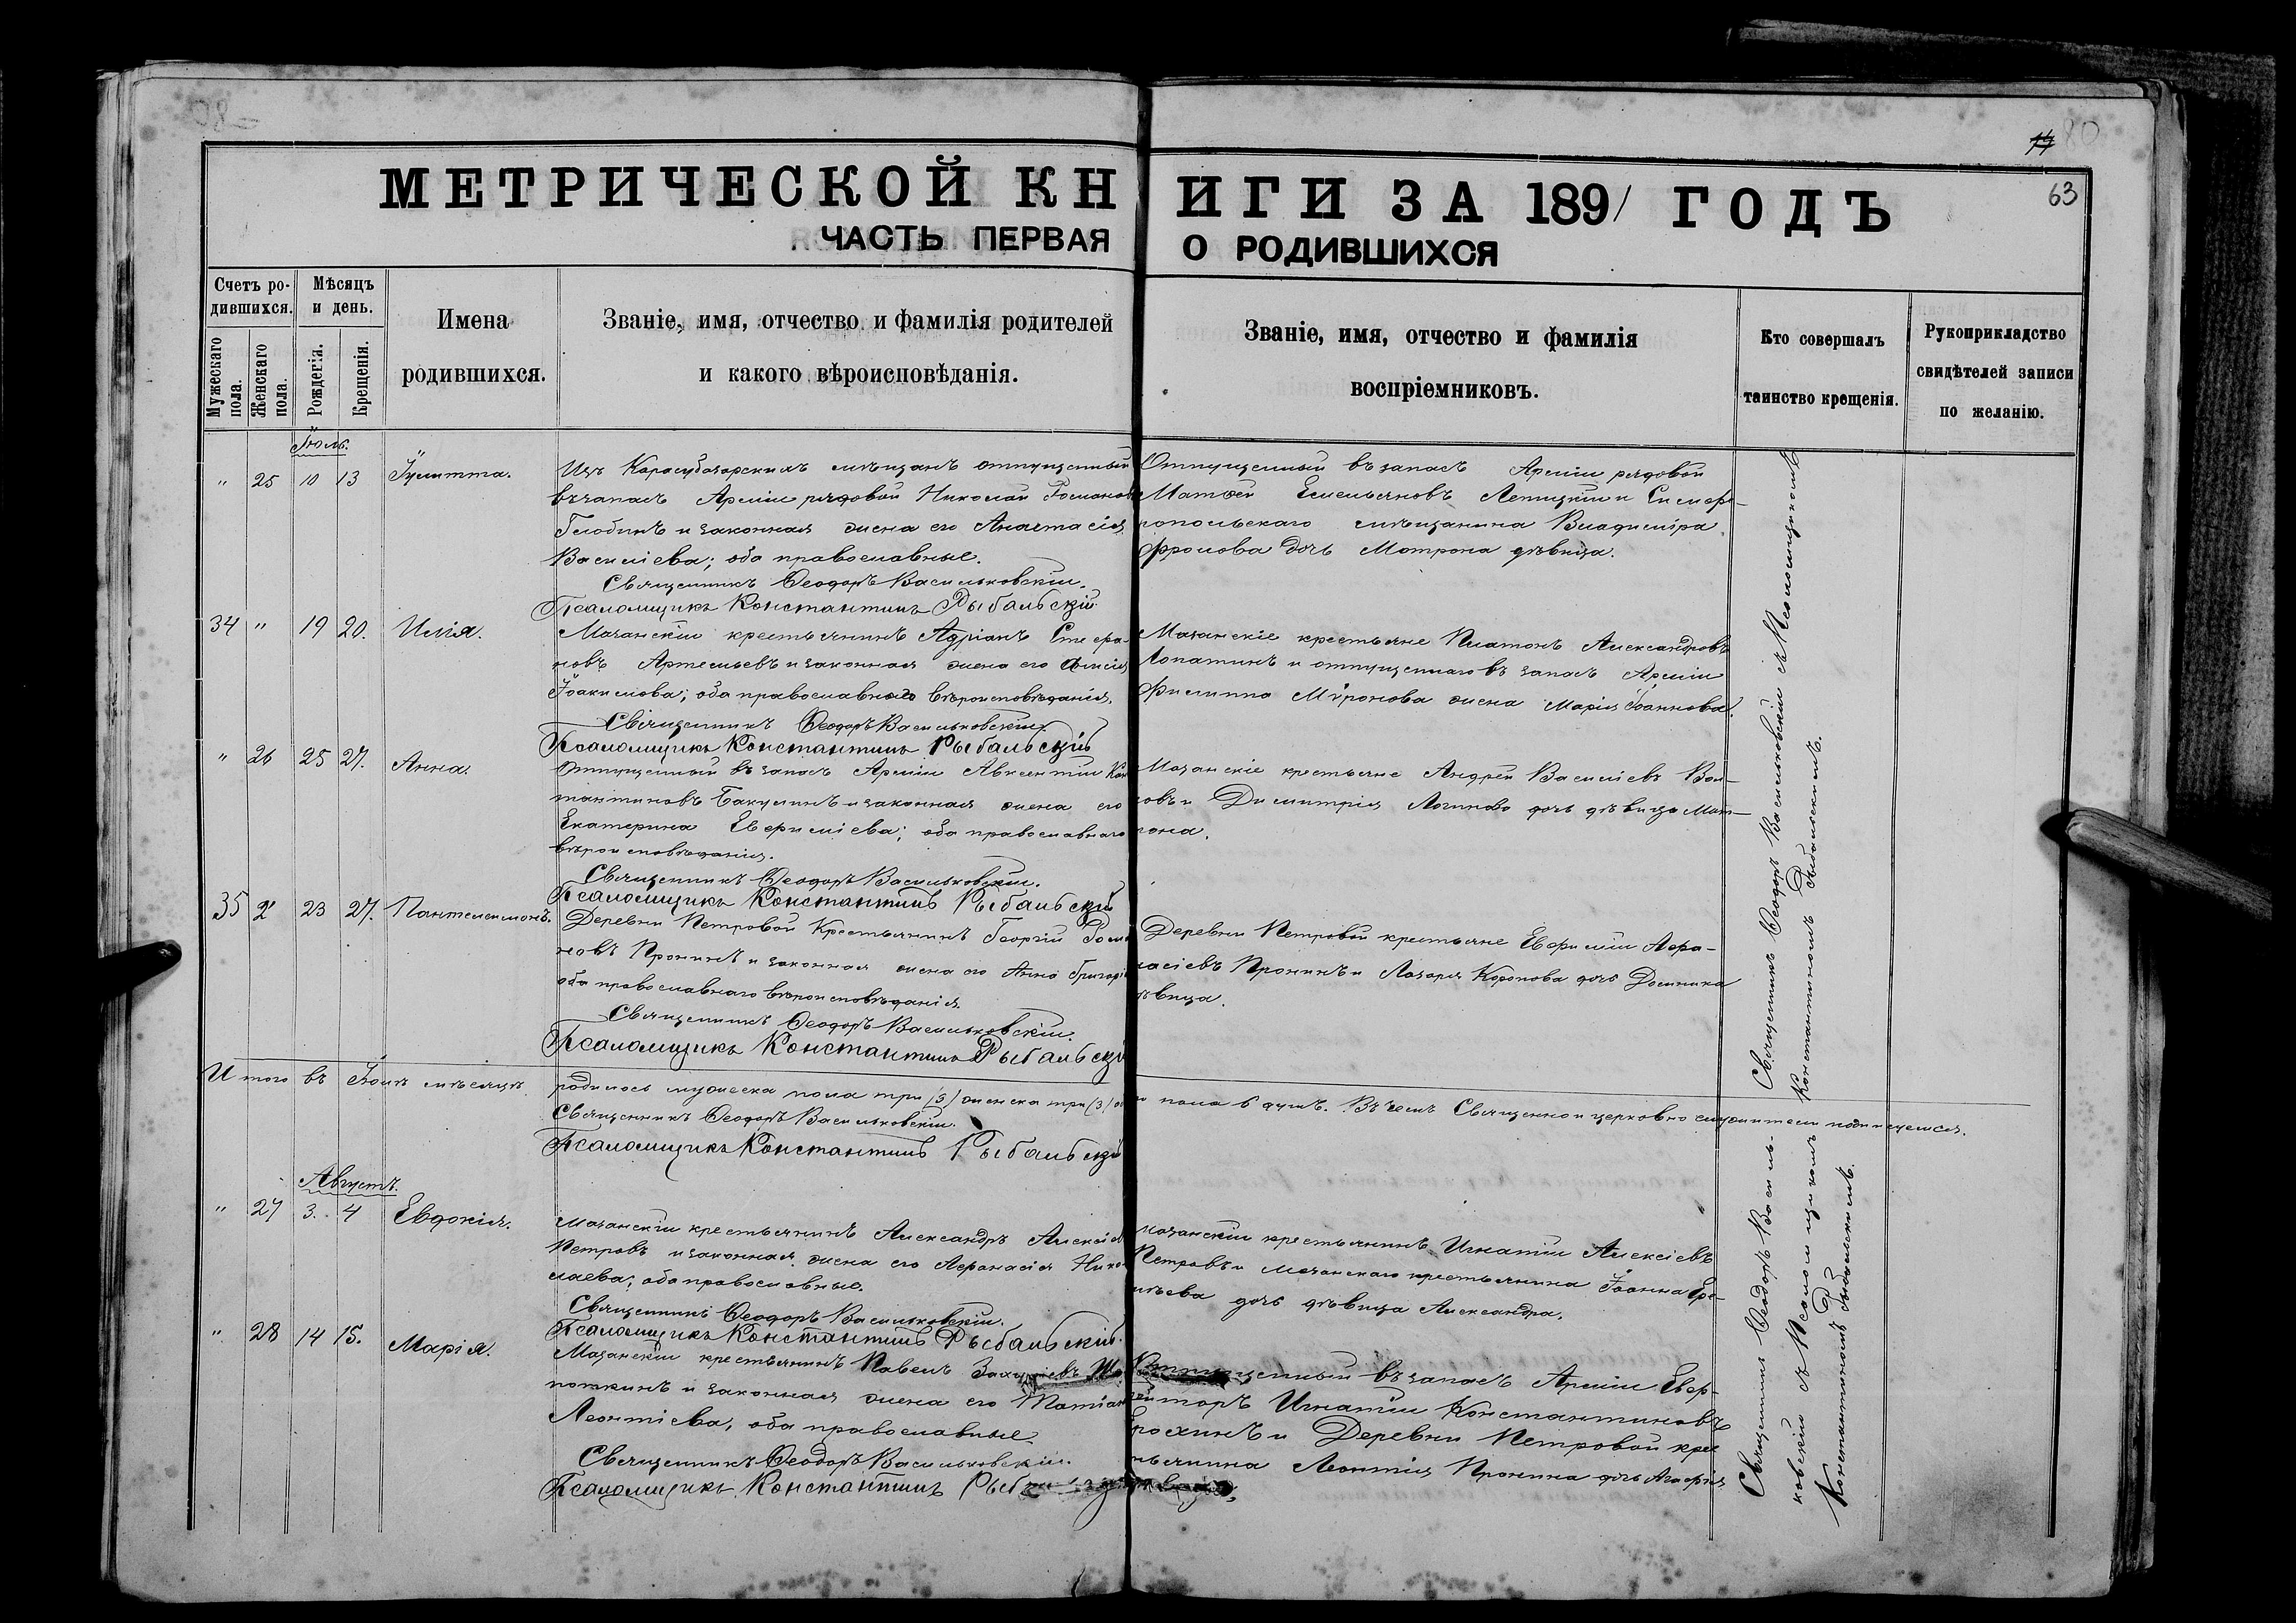 80
63
МЕТРИЧЕСКОЙ КНИГИ ЗА 1891 ГОДЪ
ЧАСТЬ ПЕРВАЯ О РОДИВШИХСЯ
Счетъ ро-
дившихся.
Мужескаго пола.
Женскаго пола.
Мѣсяцъ
и день.
Рожденія.
Крещенія.
Имена
родившихся.
Званіе, имя, отчество и фамилія родителей
и какого вѣроисповѣданія.
Званіе, имя, отчество и фамилія
воспріемниковъ.
Кто совершалъ
таинство крещенія.
Рукоприкладство
свидѣтелей записи
по желанію.
Іюль.
" 25 10 13 Іулитта.
Изъ Карасубазарскихъ мѣщанъ отпущенный
въ запасъ Арміи рядовой Николай Романовъ
и законная жена его Анастасія
Василіева; оба православные.
Священникъ Ѳеодоръ Васильковскій.
Псаломщикъ Константинъ Рыбальскій.
Отпущенный въ запасъ Арміи рядовой
Матѳей Емельяновъ Лепицкій и Симфе-
ропольскаго мѣщанина Владиміра
Фролова дочь Матрона дѣвица.
34 " 19 20. Илія.
Мазанскій крестьянинъ Адріанъ Стефа-
новъ Артемьевъ и законная жена его
Іоакимова; оба православнаго вѣроисповѣданія.
Священникъ Ѳеодоръ Васильковскій.
Псаломщикъ Константинъ Рыбальскій
Мазанскіе крестьяне Платонъ Александровъ
Лопатинъ и отпущеннаго въ запасъ Арміи
Филиппа Мѵронова жена Марія Іоаннова.
" 26 25 27. Анна.
Отпущенный въ запасъ Арміи Авксентій Конс
тантиновъ Бакулинъ и законная жена его
Екатерина Евфиміева; оба православнаго
вѣроисповѣданія.
Священникъ Ѳеодоръ Васильковскій.
Псаломщикъ Константинъ Рыбальскій
Мазанскіе крестьяне Андрей Василіевъ Вол-
ковъ и Димитрія Логинова дочь дѣвица Мат-
рона.
35 " 23 27. Пантелеимонъ.
Деревни Петровой Крестьянинъ Георгій Рома
новъ Пронинъ и законная жена его Анна Григорі
оба православнаго вѣроисповѣданія.
Священникъ Ѳеодоръ Васильковскій.
Псаломщикъ Константинъ Рыбальскій
Деревни Петровой крестьяне Евфимій Афа-
насіевъ Пронинъ и Лазаря дочь Домника
дѣвица.
Итого въ Іюлѣ мѣсяцѣ родилось мужеска пола три (3) женска три (3) обоего пола 6 душъ. Въ чемъ Священно и церковно служители подписуемся.
Священникъ Ѳеодоръ Васильковскій.
Псаломщикъ Константинъ Рыбальскій
Августъ.
" 27 3. 4 Евдокія.
Мазанскій крестьянинъ Александръ Алексіев
Петровъ и законная жена его Афанасія Нико-
лаева; оба православные.
Священникъ Ѳеодоръ Васильковскій.
Псаломщикъ Константинъ Рыбальскій.
мазанскій крестьянинъ Игнатій Алексіевъ
Петровъ и мазанскаго крестьянина Іоанна Ере-
мѣева дочь дѣвица Александра.
" 28 14 15. Марія.
Мазанскій крестьянинъ Павелъ
и законная жена его Татіана
Леонтіева, оба православные.
Священникъ Ѳеодоръ Васильковскій.
Псаломщикъ Константинъ
Отпущенный въ запасъ Арміи Ефр-
ейторъ Игнатій Константиновъ
Ерохинъ и Деревни Петровой крес
тьянина Леонтія Пронина дочь Агафія
дѣвица.
Священникъ Ѳеодоръ Васильковскій съ Псаломщикомъ
Константиномъ Рыбальскимъ.
Священникъ Ѳеодоръ Василь-
ковскій съ Псаломщикомъ
Константиномъ Рыбальскимъ.